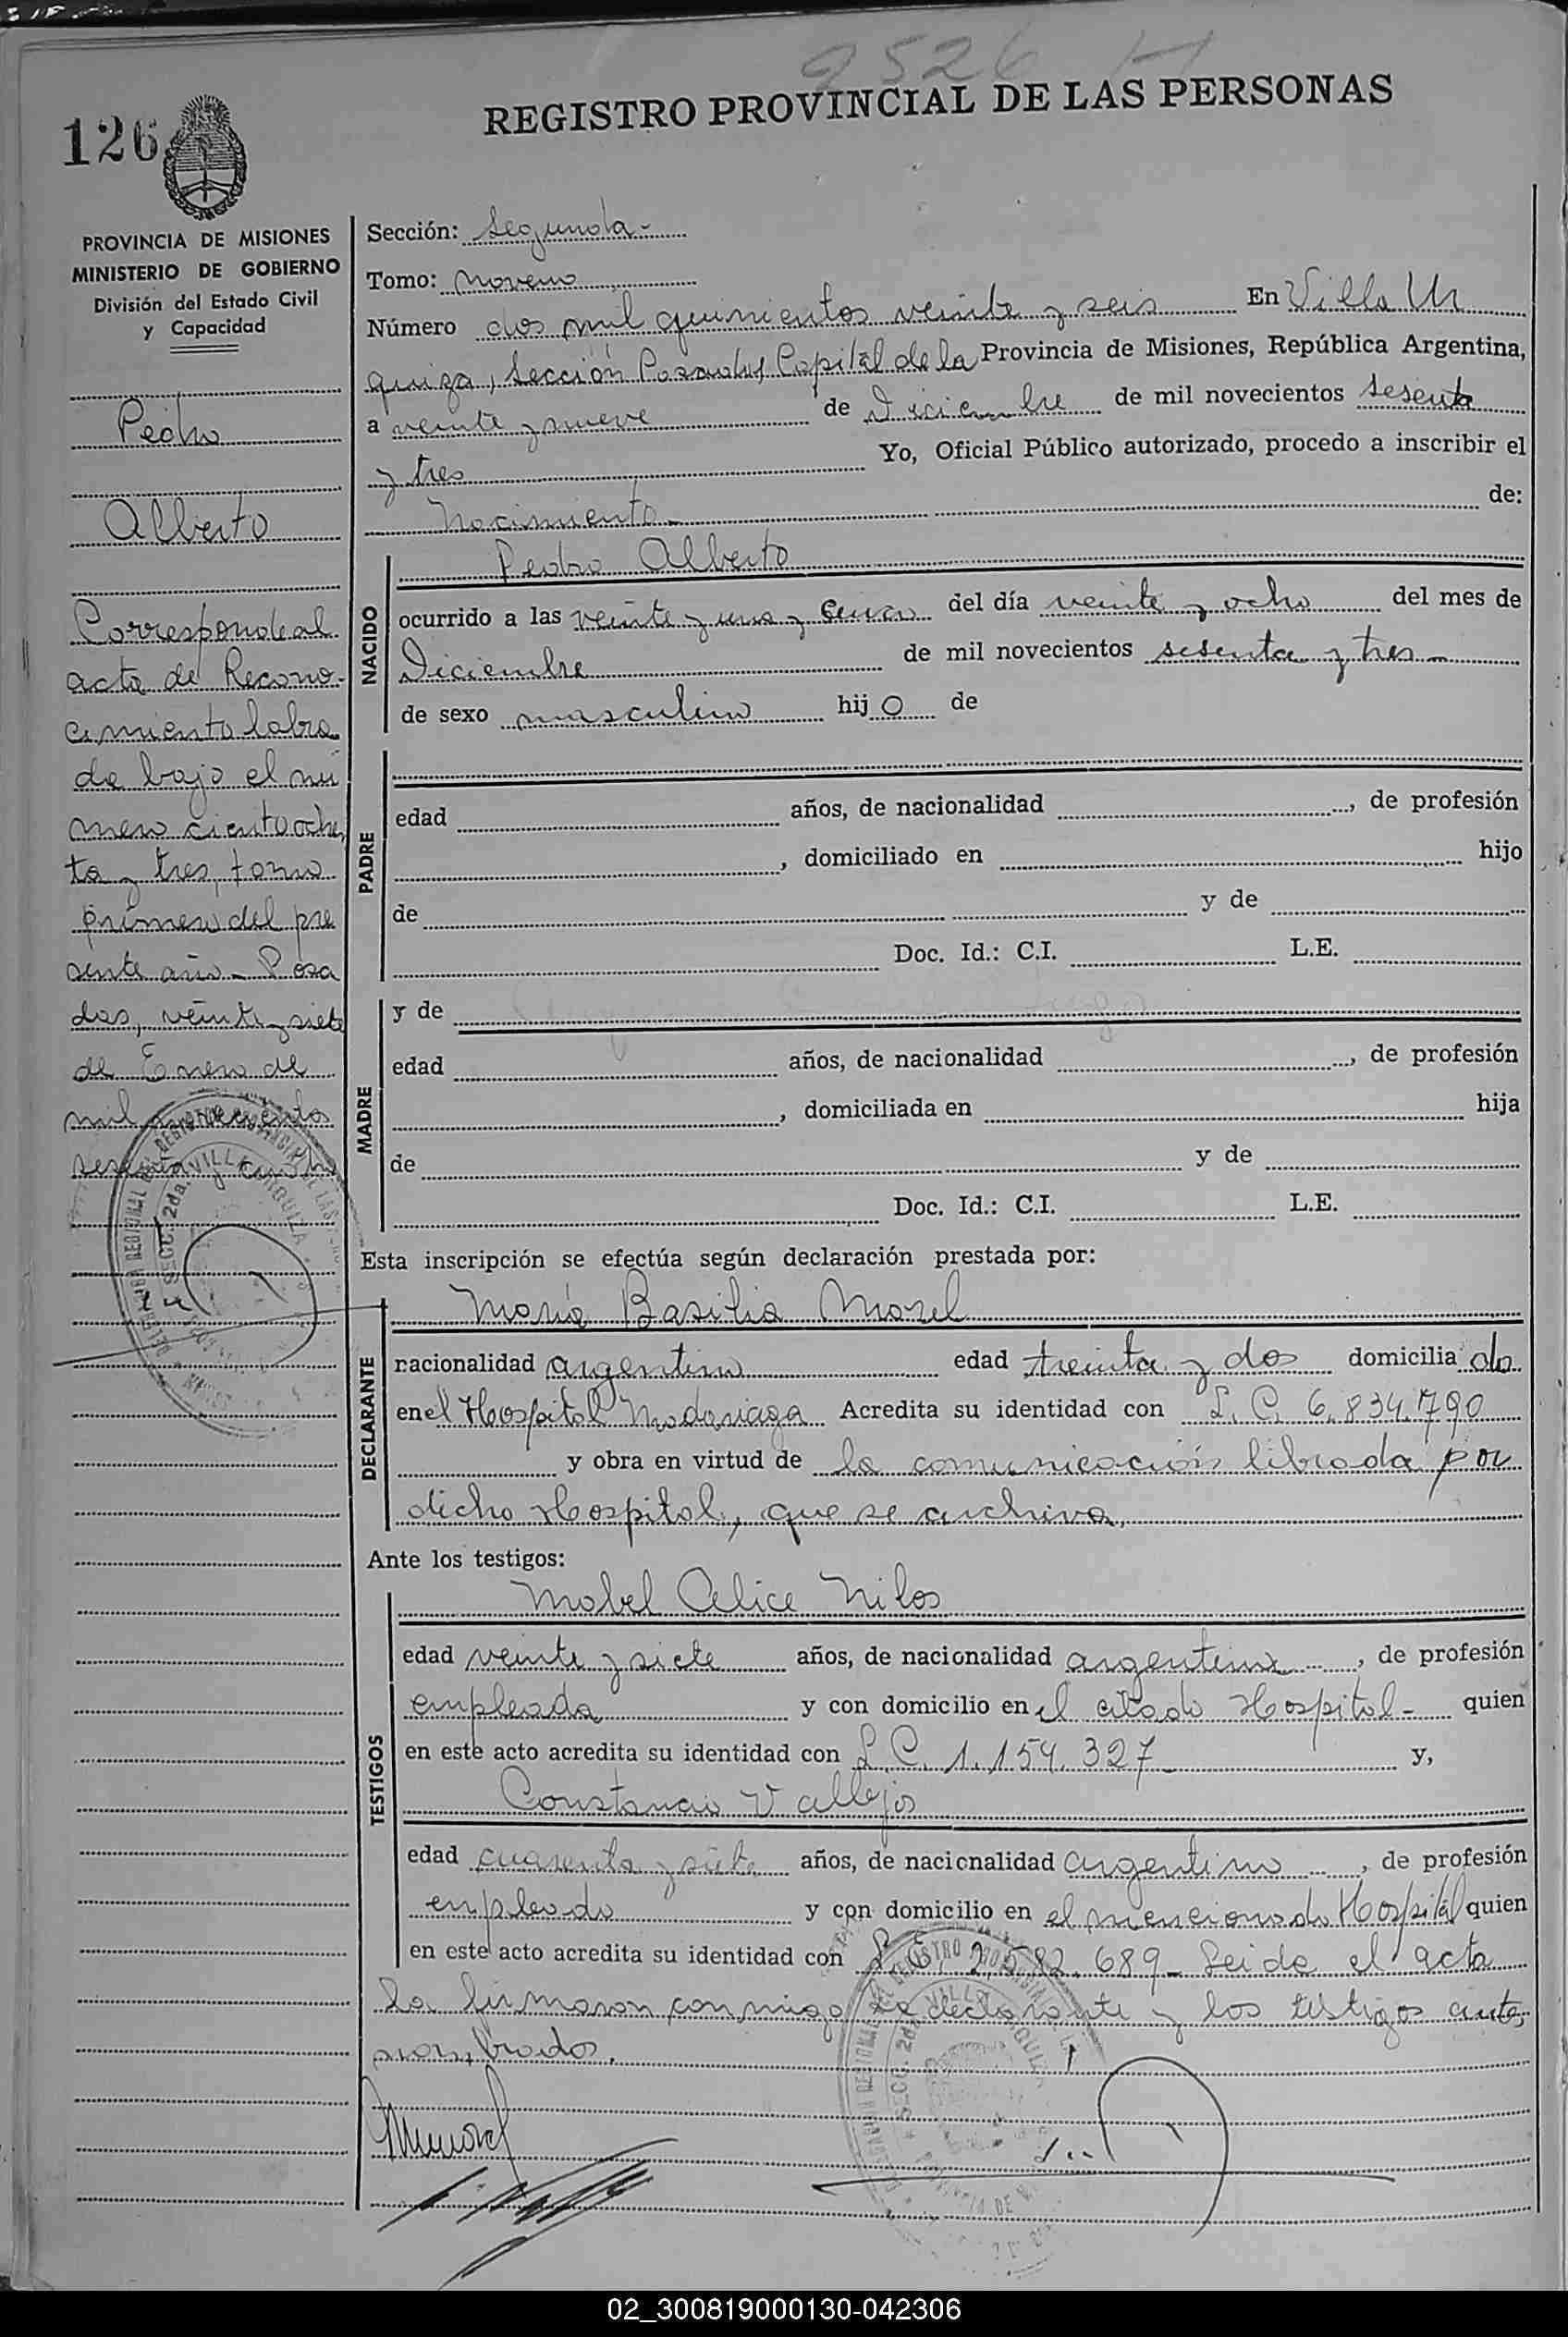 2526 H
REGISTRO PROVINCIAL DE LAS PERSONAS
126
PROVINCIA DE MISIONES
MINISTERIO DE GOBIERNO
División del Estado Civil
y Capacidad
Pedro
Alberto
Corresponde al
acta de Recono-
cimiento labra
da bajo el nú
mero ciento ochen
ta y tres, tomo
primero del pre
sente año - Posa
das, veinte y siete
de Enero de
mil novecientos
sesenta y cuatro
Sección: Segunda-
Tomo: Noveno
Número dos mil quinientos veinte y seis En Villa Ur
quiza, Sección Posadas Capital de la Provincia de Misiones, República Argentina,
a veinte y nueve de Diciembre de mil novecientos sesenta
y tres Yo, Oficial Público autorizado, procedo a inscribir el
Nacimiento de:
NACIDO
Pedro Alberto
ocurrido a las veinte y una y cinco del día veinte y ocho del mes de
Diciembre de mil novecientos sesenta y tres-
de sexo masculino hijo de
PADRE
edad años, de nacionalidad , de profesión
, domiciliado en hijo
de y de
Doc. Id.: C.I. L.E.
MADRE
y de
edad años, de nacionalidad , de profesión
, domiciliada en hija
de y de
Doc. Id.: C.I. L.E.
Esta inscripción se efectúa según declaración prestada por:
DECLARANTE
María Basilia Morel
nacionalidad argentina edad treinta y dos domicilia da
en el Hospital Madariaga Acredita su identidad con L. C. 6.834.790
y obra en virtud de la comunicación librada por
dicho Hospital, que se archiva,
Ante los testigos:
TESTIGOS
Mabel Alice Nilos
edad veinte y siete años, de nacionalidad argentina, de profesión
empleada y con domicilio en el citado Hospital- quien
en este acto acredita su identidad con L.C. 1.154.327 y,
Constancio Vallejos
edad cuarenta y siete años, de nacionalidad argentino, de profesión
empleado y con domicilio en el mencionado Hospital quien
en este acto acredita su identidad con L.E. 2.582.689- Leida el acta
la firmaron conmigo la declarante y los testigos ante
nombrados.
02_300819000130-042306